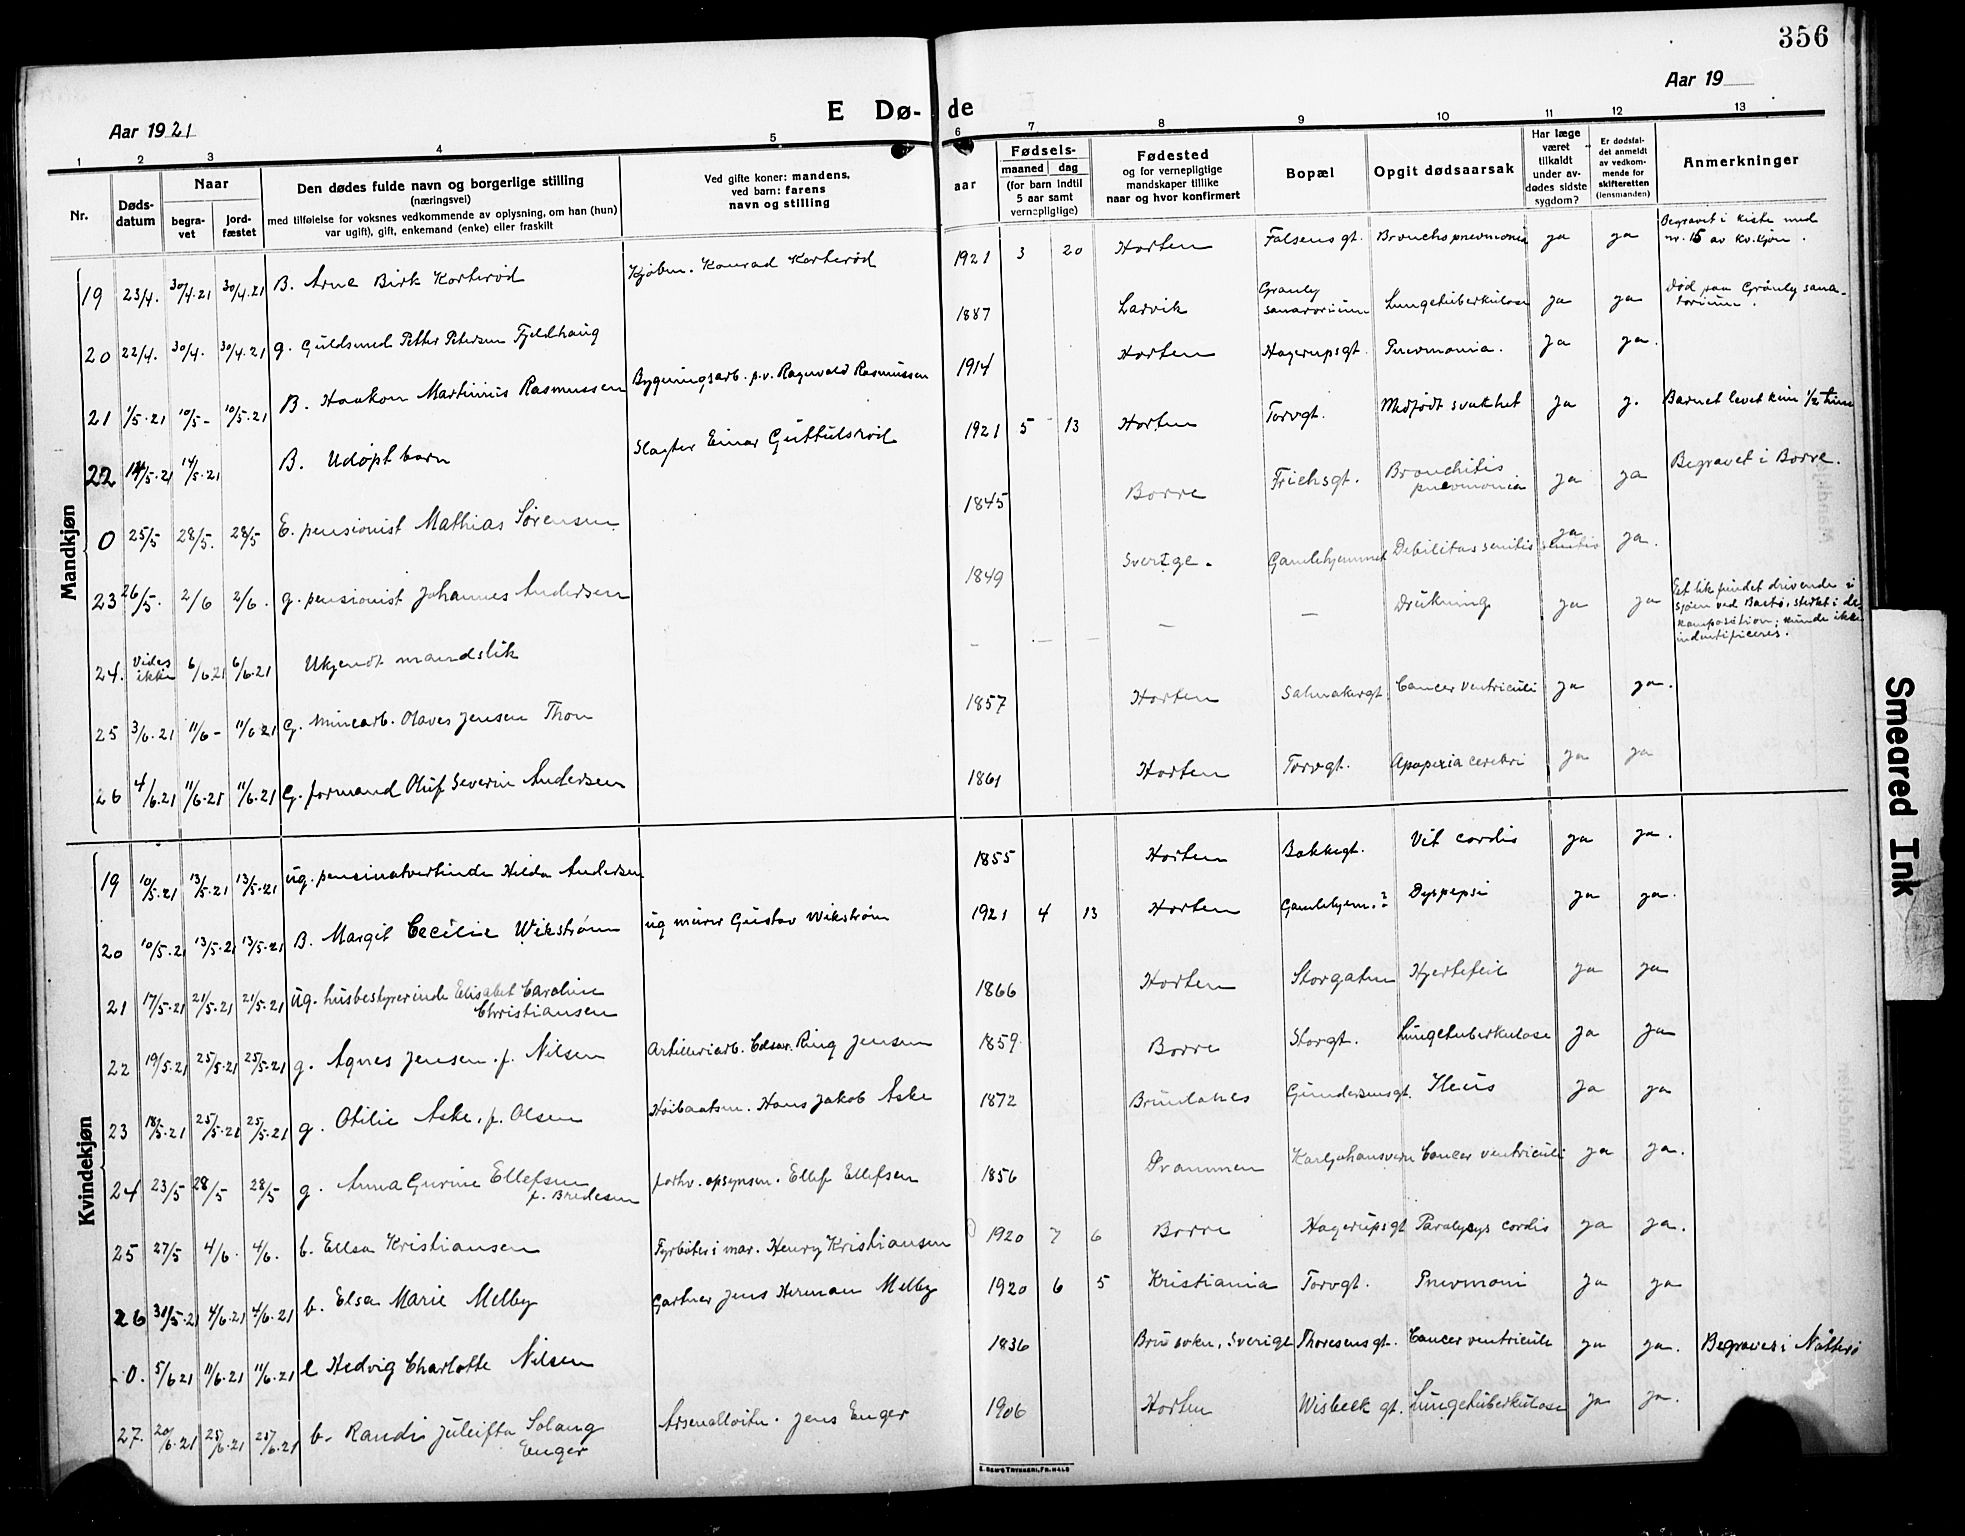 356
Aar 1921
E Dø-de
Aar 19
1 2 3 4 5 6 7 8 9 10 11 12 13
Nr.
Døds-
datum
Naar
begra-
vet
jord-
fæstet
Den dødes fulde navn og borgerlige stilling
(næringsvei)
med tilføielse for voksnes vedkommende av oplysning, om han (hun)
var ugift), gift, enkemand (enke) eller fraskilt
Ved gifte koner: mandens,
ved barn: farens
navn og stilling
aar
Fødsels-
maaned dag
(for barn indtil
5 aar samt
vernepligtige)
Fødested
og for vernepligtige
mandskaper tillike
naar og hvor konfirmert
Bopæl
Opgit dødsaarsak
Har læge
været
tilkaldt
under av-
dødes sidste
sygdom?
Er dødsfal-
det anmeldt
av vedkom-
mende for
skifteretten
(lensmanden)
Anmerkninger
Mandkjøn
19 23/4. 30/4.21 30/4.21 B. Arne Birk Korterød Kjøbm. Konrad Korterød 1921 3 20 Horten Falsensgt. Bronchopneumonia ja ja Begravet i kiste med
nr. 15 av kv.kjøn.
20 22/4. 30/4. 30/4.21 g. Guldsmed Petter Petersen Fjeldhaug 1887 Larvik Granly
sanatorium Lungetuberkulose ja ja Død paa Grånly sana-
torium.
21 1/5.21 10/5- 10/5.21 B. Haakon Martinius Rasmussen Bygningsarb. p.v. Ragnvald Rasmussen 1914 Horten Hagerupsgt. Pnevmonia. ja ja.
22 14/5.21 14/5.21 B. Udøpt barn Slagter Einar Guttulsrød 1921 5 13 Horten Torvgt. Medfødt svakhet ja j. Barnet levet kun 1/2 time
0 25/5 28/5. 28/5 E. pensionist Mathias Sørensen 1845 Borre Frichsgt. Bronchitis
pnevmonia ja ja Begravet i Borre.
23 26/5. 2/6 2/6. g. pensionist Johannes Andersen 1849 Sverige. Gamlehjemmet Debilitas senilis ja ja.
24. Vides
ikke 6/6.21 6/6.21 Ukjendt mandslik — — — — — Drukning ja ja Et lik fundet drivende i
sjøen ved Bastø, sterkt i de-
komposition; kunde ikke
indentificeres.
25 3/6.21 11/6- 11/6.21 G. Minearb. Olaves Jensen Thon 1857 Horten Salmakergt Cancer ventriculi ja ja.
26 4/6.21 11/6.21 11/6.21 G. formand Oluf Severin Andersen 1861 Horten Torvgt. Apopexia cerebri ja ja
Kvindekjøn
19 10/5.21 13/5.21 13/5.21 ug. pensinatvertinde Hilda Andersen 1855 Horten Bakkegt. Vit cordis ja ja.
20 10/5.21 13/5.21 13/5.21 B. Margit Cecilie Wikstrøm ug murer Gustav Wikstrøm 1921 4 13 Horten Gamlehjem.? Dyspepsi ja ja.
21 17/5.21 21/5.21 21/5.21 ug. husbestyrerinde Elisabet Caroline
Christiansen 1866 Horten Storgaten Hjertefeil ja ja
22 19/5.21 25/5.21 25/5.21 g. Agnes Jensen. f. Nilsen Artilleriarb. Cesar. Ring Jensen 1859 Borre Storgt. Lungetuberkulose ja ja
23 18/5.21 25/5.21 25/5.21 g. Otilie Aske, f. Olsen Høibaatsm. Hans Jakob Aske 1872 Brunlanes Gundersensgt. Ileus ja ja
24 23/5 28/5 28/5 g. Anna Gurine Ellefsen
f. Bredesen forhv. opsynsm. Ellef Ellefsen 1856 Drammen Karljohansvern Cancer ventriculi ja ja.
25 27/5 4/6. 4/6. b. Ellsa Kristiansen Fyrbøter i mar. Henry Kristiansen 1920 7 6 Borre Hagerupsgt Paralysys cordis ja ja.
26 31/5.21 4/6.21 4/6.21 b. Elsa Marie Melby Gartner Jens Herman Melby 1920 6 5 Kristiania Torvgt. Pnevmoni ja ja
0. 5/6 21 11/6.21 11/6.21 e Hedvig Charlotte Nilsen 1836 Bru sokn, Sverige Thoresensgt. Cancer ventricule ja ja. Begraves i Nøtterø
27. 20/6.21 25/6.21 25/6.21 b. Randi Solang
Enger Arsenalloitn. Jens Enger 1906 Horten Wisbeck gt. Lungetuberkulose ja ja.
Smeared Ink